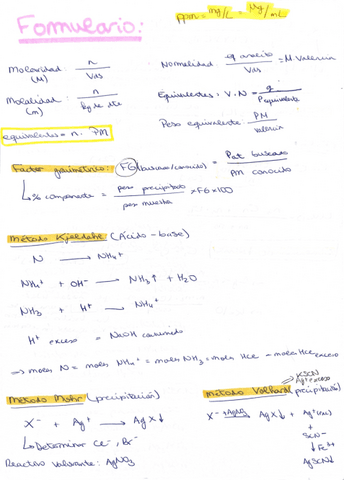 Formulario:
ppm = mg/L = µg/mL
Molaridad: n / Vds
(M)
Normalidad: eq analito / Vds = M · Valencia
Molalidad: n / kg de dte
(m)
Equivalentes: V·N = g / Pequivalente
Peso equivalente: PM / valencia
equivalentes = n · PM
Factor gravimétrico: FG (buscado/conocido) = Pat buscado / PM conocido
↳ % componente = peso precipitado / peso muestra × FG × 100
Método Kjeldahl (Ácido-base)
N → NH4+
NH4+ + OH- → NH3↑ + H2O
NH3 + H+ → NH4+
H+ exceso = NaOH consumido
⇒ moles N = moles NH4+ = moles NH3 = moles HCl - moles HCl exceso
Método Mohr (precipitación)
X- + Ag+ → AgX↓
↳ Determinar Cl-, Br-
Reactivo valorante: AgNO3
KSCN
Ag+ exceso
Método Volhard (precipitación)
X- + AgNO3 → AgX↓ + Ag+ (exc)
+
SCN-
↓ Fe3+
AgSCN↓